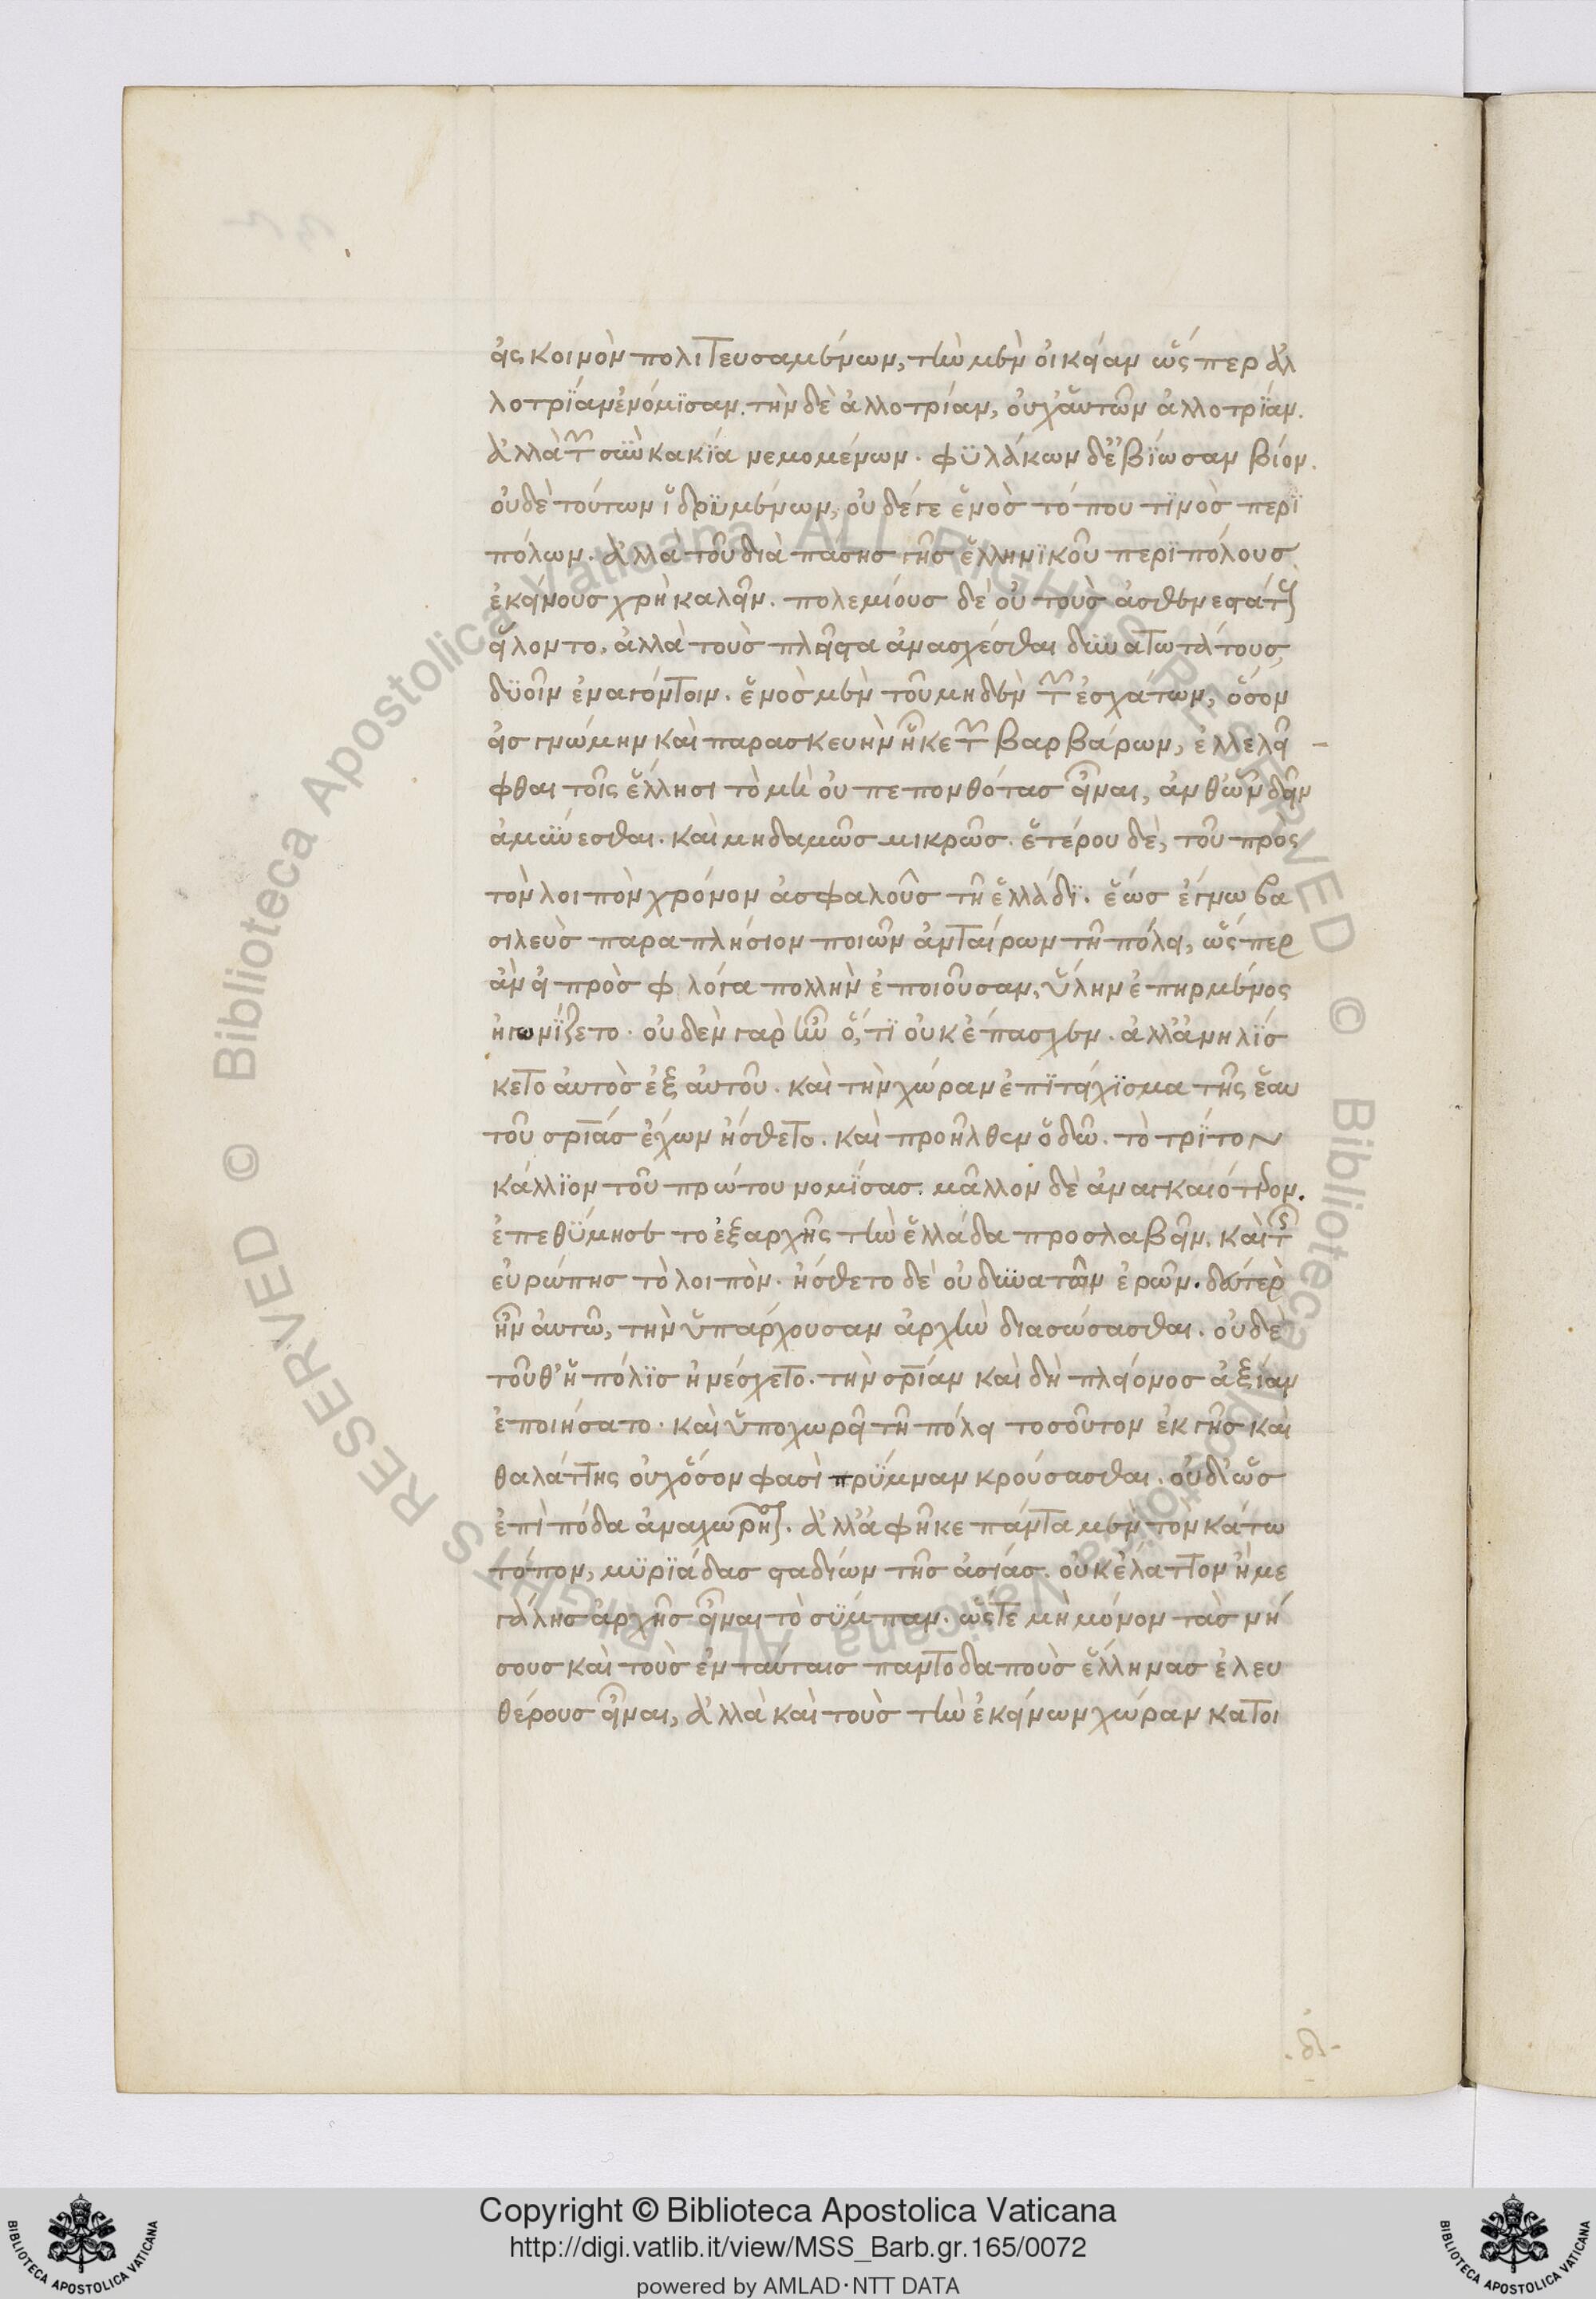 εἰς κοινὸν πολιτευσαμένων, τὴν μὲν οἰκείαν ὥς περ ἀλ
λοτρίαν ἐνόμϊσαν. τὴν δὲ ἀλλοτρίαν, οὐχ' αὑτῶν ἀλλοτρΐαν.
ἀλλὰ τῶν σὺν κακΐα νεμομένων. φϋλάκων δ' ἐβΐωσαν βίον.
οὐδὲ τούτων ἱδρϋμένων, οὐδέγε ἑνὸσ τόπου τϊνὸσ περϊ
πόλων. ἀλλὰ τοῦ διὰ πάσησ γῆσ ἑλληνϊκοῦ περϊπόλουσ
ἐκείνουσ χρὴ καλεῖν. πολεμίουσ δὲ οὐ τοὺσ ἀσθενεστάτους
εἵλοντο. ἀλλὰ τοὺσ πλεῖστα ἀνασχέσθαι δυνατωτάτους,
δϋοῖν ἐναγόντοιν. ἑνὸσ μὲν τοῦ μηδὲν τῶν ἐσχάτων, ὅσον
εἰσ γνώμην καὶ παρασκευὴν ἧκε τῶν βαρβάρων, ἐλλελεῖ
φθαι τοῖς ἕλλησι τὸ μὴ οὐ πεπονθότασ εἶναι, ἀνθ' ὧν δεῖν
ἀμΰνεσθαι. καὶ μηδαμῶσ μικρῶσ. ἑτέρου δὲ, τοῦ πρὸς
τὸν λοιπὸν χρόνον ἀσφαλοῦσ τῆ ἑλλάδϊ. ἕωσ ἔγνω βα
σιλεὺσ παραπλήσιον ποιῶν ἀνταίρων τῆ πόλει, ὥς περ
ἂν εἰ πρὸσ φλόγα πολλὴν ἐποιοῦσαν, ὕλην ἐπηρμένος
ἠγωνΐζετο. οὐδὲν γαρ ἦν ὅ,τϊ οὐκ ἔπασχεν. ἀλλ' ἀνηλΐσ
κετο ἀυτὸσ ἐξ ἀυτοῦ. καὶ τὴν χώραν ἐπϊτείχϊσμα τῆς ἑαυ
τοῦ σωτηρίασ ἔχων ἤσθετο. καὶ προῆλθεν ὁδῶ. τὸ τρΐτον
κάλλϊον τοῦ πρώτου νομΐσασ. μᾶλλον δὲ ἀναγκαιότερον.
ἐπεθΰμησε το ἐξαρχῆς τὴν ἑλλάδα προσλαβεῖν, καὶ τῆς
ἐυρώπησ τὸ λοιπὸν. ἤσθετο δὲ οὐ δϋνατῶν ἐρῶν. δεύτερον
ἦν ἀυτῶ, τὴν ὑπάρχουσαν ἀρχὴν διασώσασθαι. οὐδὲ
τοῦθ' ἡ πόλϊσ ἠνέσχετο. τὴν σωτηρίαν καὶ δὴ πλείονοσ ἀξίαν
ἐποιήσατο. καὶ ὑποχωρεῖ τῆ πόλει τοσοῦτον ἐκ γῆσ καὶ
θαλάττης οὐχ' ὅσον φασὶ πρΰμναν κρούσασθαι. οὐδ' ὡς
ἐπὶ πόδα ἀναχωρῆσαι. ἀλλ' ἀφῆκε πάντα μὲν τον κάτω
τόπον, μϋρϊάδασ σταδίων τῆσ ἀσίασ. οὐκ ἔλαττον ἢ με
γάλησ ἀρχῆσ εἶναι τὸ σΰμπαν. ὥςτε μὴ μόνον τὰσ νή
σουσ καὶ τοὺσ ἐν ταύταισ παντοδαποὺσ ἕλληνασ ἐλευ
θέρουσ εἶναι, ἀλλὰ καὶ τοὺσ τὴν ἐκείνων χώραν κατοι
Copyright © Biblioteca Apostolica Vaticana
http://digi.vatlib.it/view/MSS_Barb.gr.165/0072
powered by AMLAD·NTT DATA